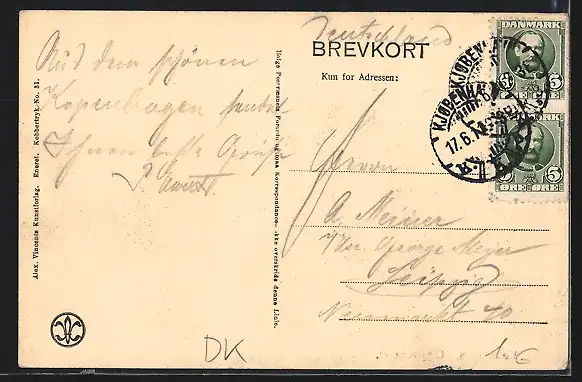 Alex. Vincents Kunstforlag. Eneret. Kobbertryk No. 31.
Aus dem schönen
Kopenhagen sendet
Ihnen beste Grüße
Ifølge Postvæsenets Forordning maa Korrespondancen ikke overskride denne Linie.
Deutschland
BREVKORT
Kun for Adressen:
DANMARK
5 5
ØRE ØRE
DANMARK
5 5
ØRE ØRE
KJØBENHAVN
17.6.
KJØBENHAVN
Herrn
A. Meiner
George Meyer
Leipzig
Neumarkt 40
DK